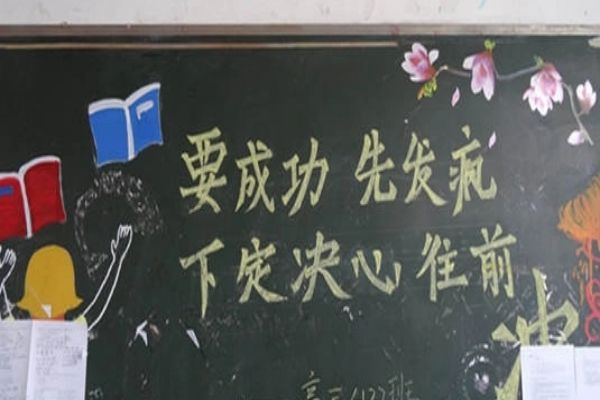 要成功 先发疯
下定决心 往前
冲
高三(122)班